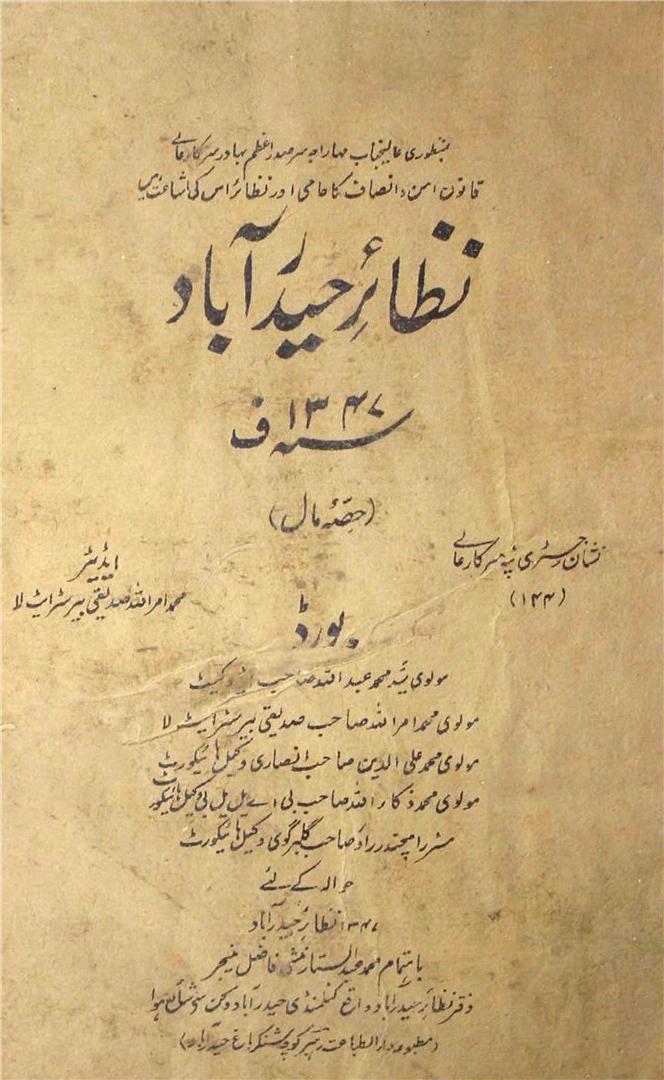 بمنظوری عالیجناب مہاراجہ سر صدر اعظم بہادر سرکار عالی
قانون امن و انصاف کا حامی اور نظائر اس کی اشاعت ہیں
نظائرِ حیدرآباد
سنہ ۱۳۴۷ ف
(حصّۂ مال)
نشان رجسٹری ٹپہ سرکار عالی
(۱۴۴)
ایڈیٹر
محمد امر اللہ صدیقی بیرسٹر ایٹ لا
بورڈ
مولوی سید محمد عبد اللہ صاحب ایڈوکیٹ
مولوی محمد امر اللہ صاحب صدیقی بیرسٹر ایٹ لا
مولوی محمد علی الدین صاحب انصاری وکیل ہائیکورٹ
مولوی محمد ذکار اللہ صاحب بی اے یل یل بی وکیل ہائیکورٹ
مسٹر رامچندر راؤ صاحب گلبرگوی وکیل ہائیکورٹ
حوالہ کے لئے
۱۳۴۷ نظائر حیدرآباد
باہتمام محمد عبد الستار منشی فاضل منیجر
دفتر نظائر حیدرآباد واقع گنلمنڈی حیدرآباد دکن سے شائع ہوا
(مطبوعہ دار الطباعت کوچہ شنکر باغ حیدرآباد)